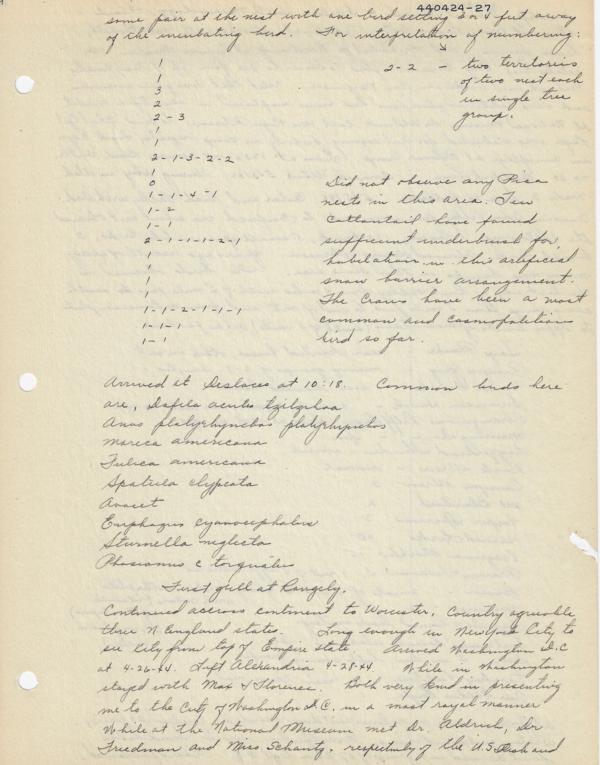 440424-27
same pair at the nest with one bird setting 3 or 4 feet away
of the incubating bird. For interpretation of numbering:
1
1
3
2
2-3
1
1
2-1-3-2-2
1
0
1-1-4-1
1-2
1-1
2-1-1-1-2-1
1
1
1
1
1-1-2-1-1-1
1-1-1
1-1
2-2 - two territories
of two nest each
in single tree
group.
Did not observe any Pica
nests in this area. Few
Cottontail have found
sufficient underbrush for
habitation in this artificial
snow barrier arrangement.
The Crows have been a most
common and cosmopolitian
bird so far.
Arrived at Deslacs at 10:18. Common birds here
are, Dafila acuta tzitzihoa
Anas platyrhynchos platyrhynchos
Mareca americana
Fulica americana
Spatula clypeata
Avocet
Euphagus cyanocephalus
Sturnella neglecta
Phasianus c torquatus
First gull at Rangely.
Continued across continent to Worcester. Country agreeable
three N England states. Long enough in New York City to
see city from top of Empire state. Arrived Washington D.C
at 4-26-44. Left Alexandria 4-28-44. While in Washington
stayed with Max & Florence. Both very kind in presenting
me to the City of Washington D.C. in a most royal manner
While at the National Museum met Dr. Aldrich, Dr
Friedman and Miss. Schantz, respectively of the U.S. Fish and